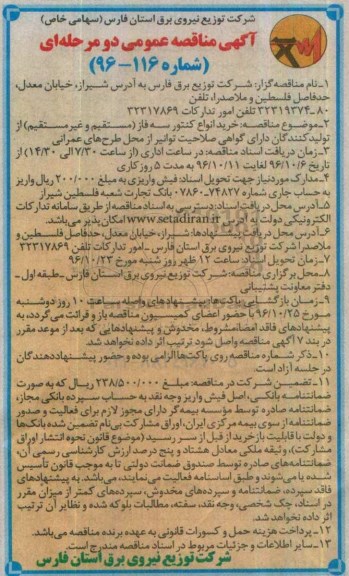 شرکت توزیع نیروی برق استان فارس (سهامی خاص)
آگهی مناقصه عمومی دو مرحله‌ای
(شماره ۱۱۶-۹۶)
۱-نام مناقصه‌گزار: شرکت توزیع برق فارس به آدرس شیراز، خیابان معدل،
حدفاصل فلسطین و ملاصدرا، تلفن
۸۰-۳۲۳۱۹۳۷۴ تلفن امور تدارکات ۳۲۳۱۷۸۶۹
۲-موضوع مناقصه: خرید انواع کنتور سه فاز (مستقیم و غیرمستقیم) از
تولیدکنندگان دارای گواهی صلاحیت توانیر از محل طرح‌های عمرانی
۳-زمان دریافت اسناد مناقصه: در ساعات اداری (از ساعت ۷/۳۰ الی ۱۴/۳۰) از
تاریخ ۹۶/۱۰/۶ لغایت ۹۶/۱۰/۱۱ به مدت ۵ روز کاری
۴-مدارک موردنیاز جهت تحویل اسناد: فیش واریزی به مبلغ ۲۰۰/۰۰۰ ریال واریز
به حساب جاری شماره ۰۷۸۶۰۷۴۸۲۷ بانک تجارت شعبه فلسطین شیراز
۵-آدرس محل دریافت اسناد: دسترسی به اسناد مناقصه از طریق سامانه تدارکات
الکترونیکی دولت به آدرس www.setadiran.ir امکان‌پذیر می‌باشد.
۶-آدرس محل دریافت پیشنهادها: شیراز، خیابان معدل، حدفاصل فلسطین و
ملاصدرا شرکت توزیع نیروی برق استان فارس - امور تدارکات تلفن ۳۲۳۱۷۸۶۹
۷-زمان تحویل اسناد: ساعت ۱۲ ظهر روز شنبه مورخ ۹۶/۱۰/۲۳
۸-محل برگزاری مناقصه: شرکت توزیع نیروی برق استان فارس - طبقه اول -
دفتر معاونت پشتیبانی
۹-زمان بازگشایی پاکت‌ها: پیشنهادهای واصله ساعت ۱۰ روز دوشنبه
مورخ ۹۶/۱۰/۲۵ با حضور اعضای کمیسیون مناقصه باز و قرائت می‌گردد، به
پیشنهادهای فاقد امضا، مشروط، مخدوش و پیشنهادهایی که بعد از موعد مقرر
در بند ۷ آگهی مناقصه واصل شود ترتیب اثر داده نخواهد شد.
۱۰-ذکر شماره مناقصه روی پاکت‌ها الزامی بوده و حضور پیشنهاددهندگان
در جلسه آزاد است.
۱۱-تضمین شرکت در مناقصه: مبلغ ۲۳۸/۵۰۰/۰۰۰ ریال که به صورت
ضمانتنامه بانکی، اصل فیش واریز وجه نقد به حساب سپرده بانکی مجاز،
ضمانتنامه صادره توسط مؤسسه بیمه‌گر دارای مجوز لازم برای فعالیت و صدور
ضمانتنامه از سوی بیمه مرکزی ایران، اوراق مشارکت بی‌نام تضمین شده بانک‌ها
و دولت با قابلیت بازخرید از قبل از سررسید (موضوع قانون نحوه انتشار اوراق
مشارکت)، و ثیقه ملکی معادل هشتاد و پنج درصد ارزش کارشناسی رسمی آن،
ضمانتنامه‌های صادره توسط صندوق ضمانت دولتی تا به موجب قانون تأسیس
شده یا می‌شوند و طبق اساسنامه فعالیت می‌نمایند، می‌باشد. به پیشنهادهای
فاقد سپرده، ضمانتنامه و سپرده‌های مخدوش، سپرده‌های کمتر از میزان مقرر
در اسناد، چک شخصی، وجه نقد، سفته، مطالبات بلوکه شده و نظایر آن ترتیب
اثر داده نخواهد شد.
۱۲-پرداخت هزینه حمل و کسورات قانونی به عهده برنده مناقصه می‌باشد.
۱۳-سایر اطلاعات و جزئیات مربوط در اسناد مناقصه مندرج است.
شرکت توزیع نیروی برق استان فارس